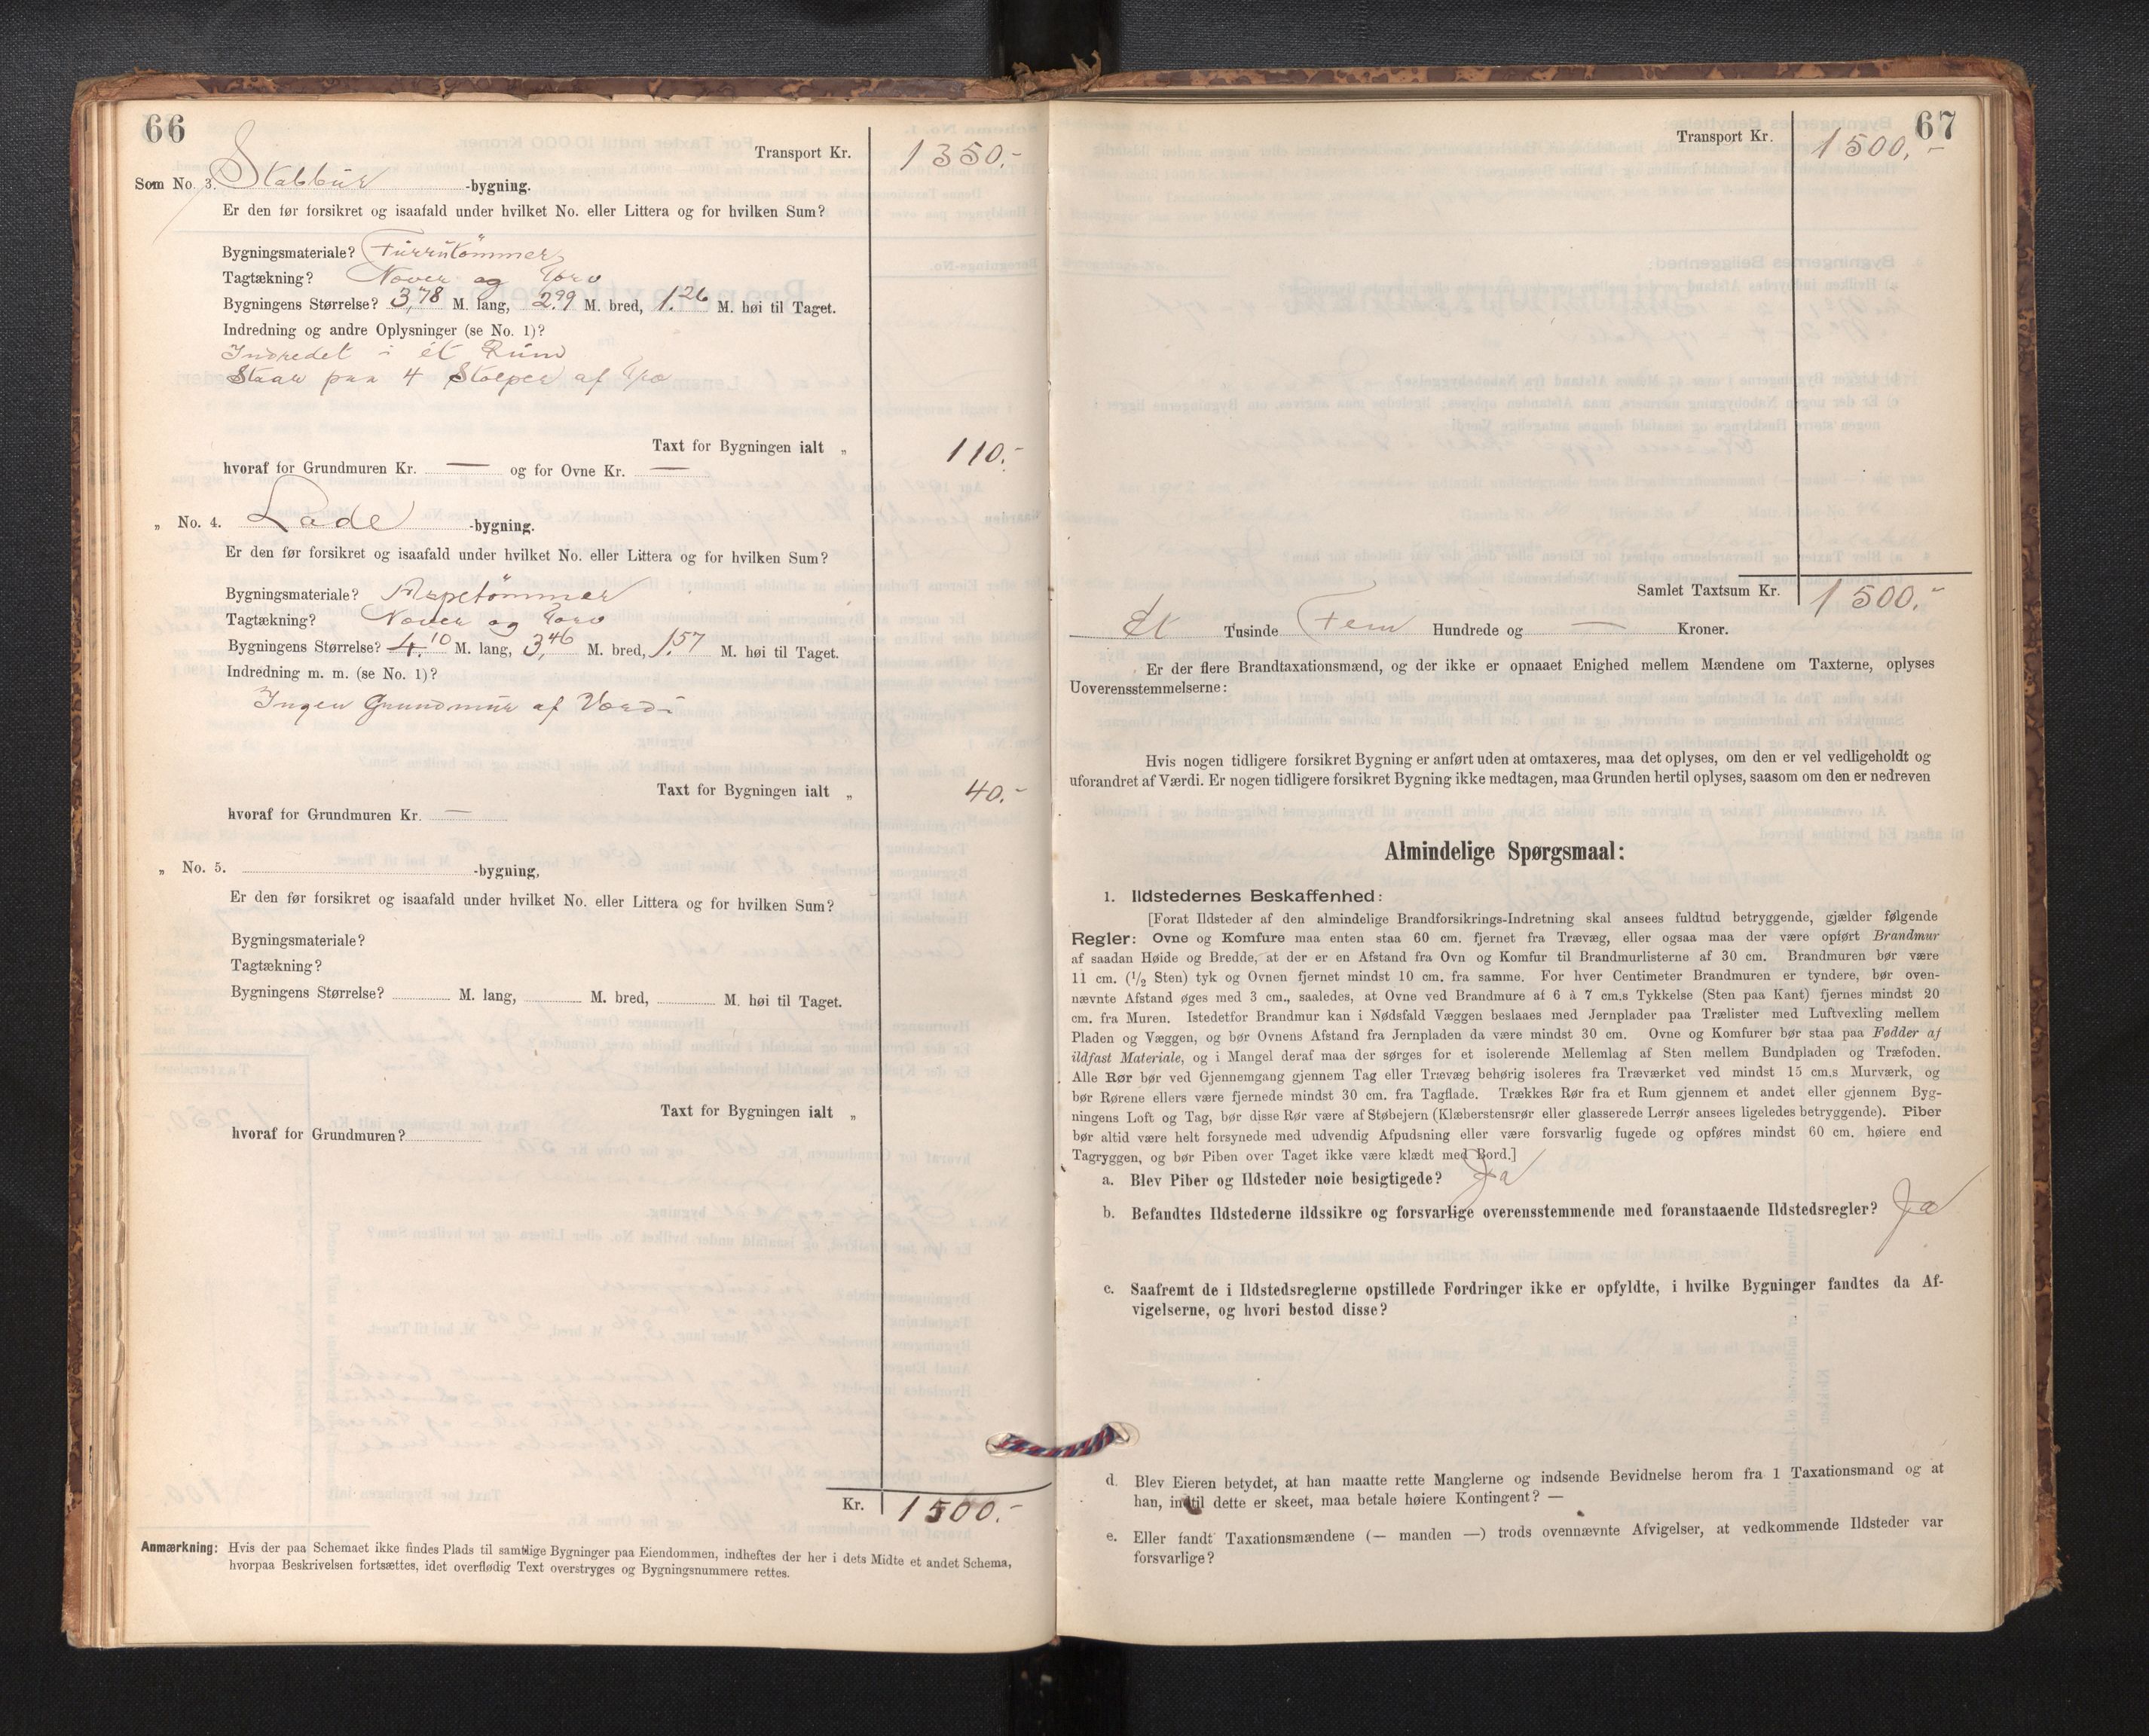 66
Transport Kr. 1350.-
Som No. 3. Stabbur -bygning.
Er den før forsikret og isaafald under hvilket No. eller Littera og for hvilken Sum?
Bygningsmateriale? Furrutömmer
Tagtækning? Næver og Torv
Bygningens Størrelse? 3,78 M. lang, 2,99 M. bred, 1.26 M. høi til Taget.
Indredning og andre Oplysninger (se No. 1)?
Indredet i ét Rum
Staar paa 4 Stolper af Træ
Taxt for Bygningen ialt „ 110.-
hvoraf for Grundmuren Kr. — og for Ovne Kr. —
„ No. 4. Lade -bygning.
Er den før forsikret og isaafald under hvilket No. eller Littera og for hvilken Sum?
Bygningsmateriale? Aspetömmer
Tagtækning? Næver og Torv
Bygningens Størrelse? 4.10 M. lang, 3,46 M. bred, 1.57 M. høi til Taget.
Indredning m. m. (se No. 1)?
Ingen Grundmur af Værdi
Taxt for Bygningen ialt „ 40.-
hvoraf for Grundmuren Kr. —
„ No. 5. -bygning,
Er den før forsikret og isaafald under hvilket No. eller Littera og for hvilken Sum?
Bygningsmateriale?
Tagtækning?
Bygningens Størrelse? M. lang, M. bred, M. høi til Taget.
Taxt for Bygningen ialt „
hvoraf for Grundmuren?
Kr. 1500.-
Anmærkning: Hvis der paa Schemaet ikke findes Plads til samtlige Bygninger paa Eiendommen, indheftes der her i dets Midte et andet Schema,
hvorpaa Beskrivelsen fortsættes, idet overflødig Text overstryges og Bygningsnummere rettes.
67
Transport Kr. 1500.-
Samlet Taxtsum Kr. 1500.-
Et Tusinde Fem Hundrede og — Kroner.
Er der flere Brandtaxationsmænd, og der ikke er opnaaet Enighed mellem Mændene om Taxterne, oplyses
Uoverensstemmelserne:
Hvis nogen tidligere forsikret Bygning er anført uden at omtaxeres, maa det oplyses, om den er vel vedligeholdt og
uforandret af Værdi. Er nogen tidligere forsikret Bygning ikke medtagen, maa Grunden hertil oplyses, saasom om den er nedreven
Almindelige Spørgsmaal:
1. Ildstedernes Beskaffenhed:
[Forat Ildsteder af den almindelige Brandforsikrings-Indretning skal ansees fuldtud betryggende, gjælder følgende
Regler: Ovne og Komfure maa enten staa 60 cm. fjernet fra Trævæg, eller ogsaa maa der være opført Brandmur
af saadan Høide og Bredde, at der er en Afstand fra Ovn og Komfur til Brandmurlisterne af 30 cm. Brandmuren bør være
11 cm. (1/2 Sten) tyk og Ovnen fjernet mindst 10 cm. fra samme. For hver Centimeter Brandmuren er tyndere, bør oven-
nævnte Afstand øges med 3 cm., saaledes, at Ovne ved Brandmure af 6 à 7 cm.s Tykkelse (Sten paa Kant) fjernes mindst 20
cm. fra Muren. Istedetfor Brandmur kan i Nødsfald Væggen beslaaes med Jernplader paa Trælister med Luftvexling mellem
Pladen og Væggen, og bør Ovnens Afstand fra Jernpladen da være mindst 30 cm. Ovne og Komfurer bør staa paa Fødder af
ildfast Materiale, og i Mangel deraf maa der sørges for et isolerende Mellemlag af Sten mellem Bundpladen og Træfoden.
Alle Rør bør ved Gjennemgang gjennem Tag eller Trævæg behørig isoleres fra Træværket ved mindst 15 cm.s Murværk, og
bør Rørene ellers være fjernede mindst 30 cm. fra Tagflade. Trækkes Rør fra et Rum gjennem et andet eller gjennem Byg-
ningens Loft og Tag, bør disse Rør være af Støbejern (Klæberstensrør eller glasserede Lerrør ansees ligeledes betryggende). Piber
bør altid være helt forsynede med udvendig Afpudsning eller være forsvarlig fugede og opføres mindst 60 cm. høiere end
Tagryggen, og bør Piben over Taget ikke være klædt med Bord.]
a. Blev Piber og Ildsteder nøie besigtigede? Ja
b. Befandtes Ildstederne ildssikre og forsvarlige overensstemmende med foranstaaende Ildstedsregler? Ja
c. Saafremt de i Ildstedsreglerne opstillede Fordringer ikke er opfyldte, i hvilke Bygninger fandtes da Af-
vigelserne, og hvori bestod disse?
d. Blev Eieren betydet, at han maatte rette Manglerne og indsende Bevidnelse herom fra 1 Taxationsmand og at
han, indtil dette er skeet, maa betale høiere Kontingent? —
e. Eller fandt Taxationsmændene (— manden —) trods ovennævnte Afvigelser, at vedkommende Ildsteder var
forsvarlige?